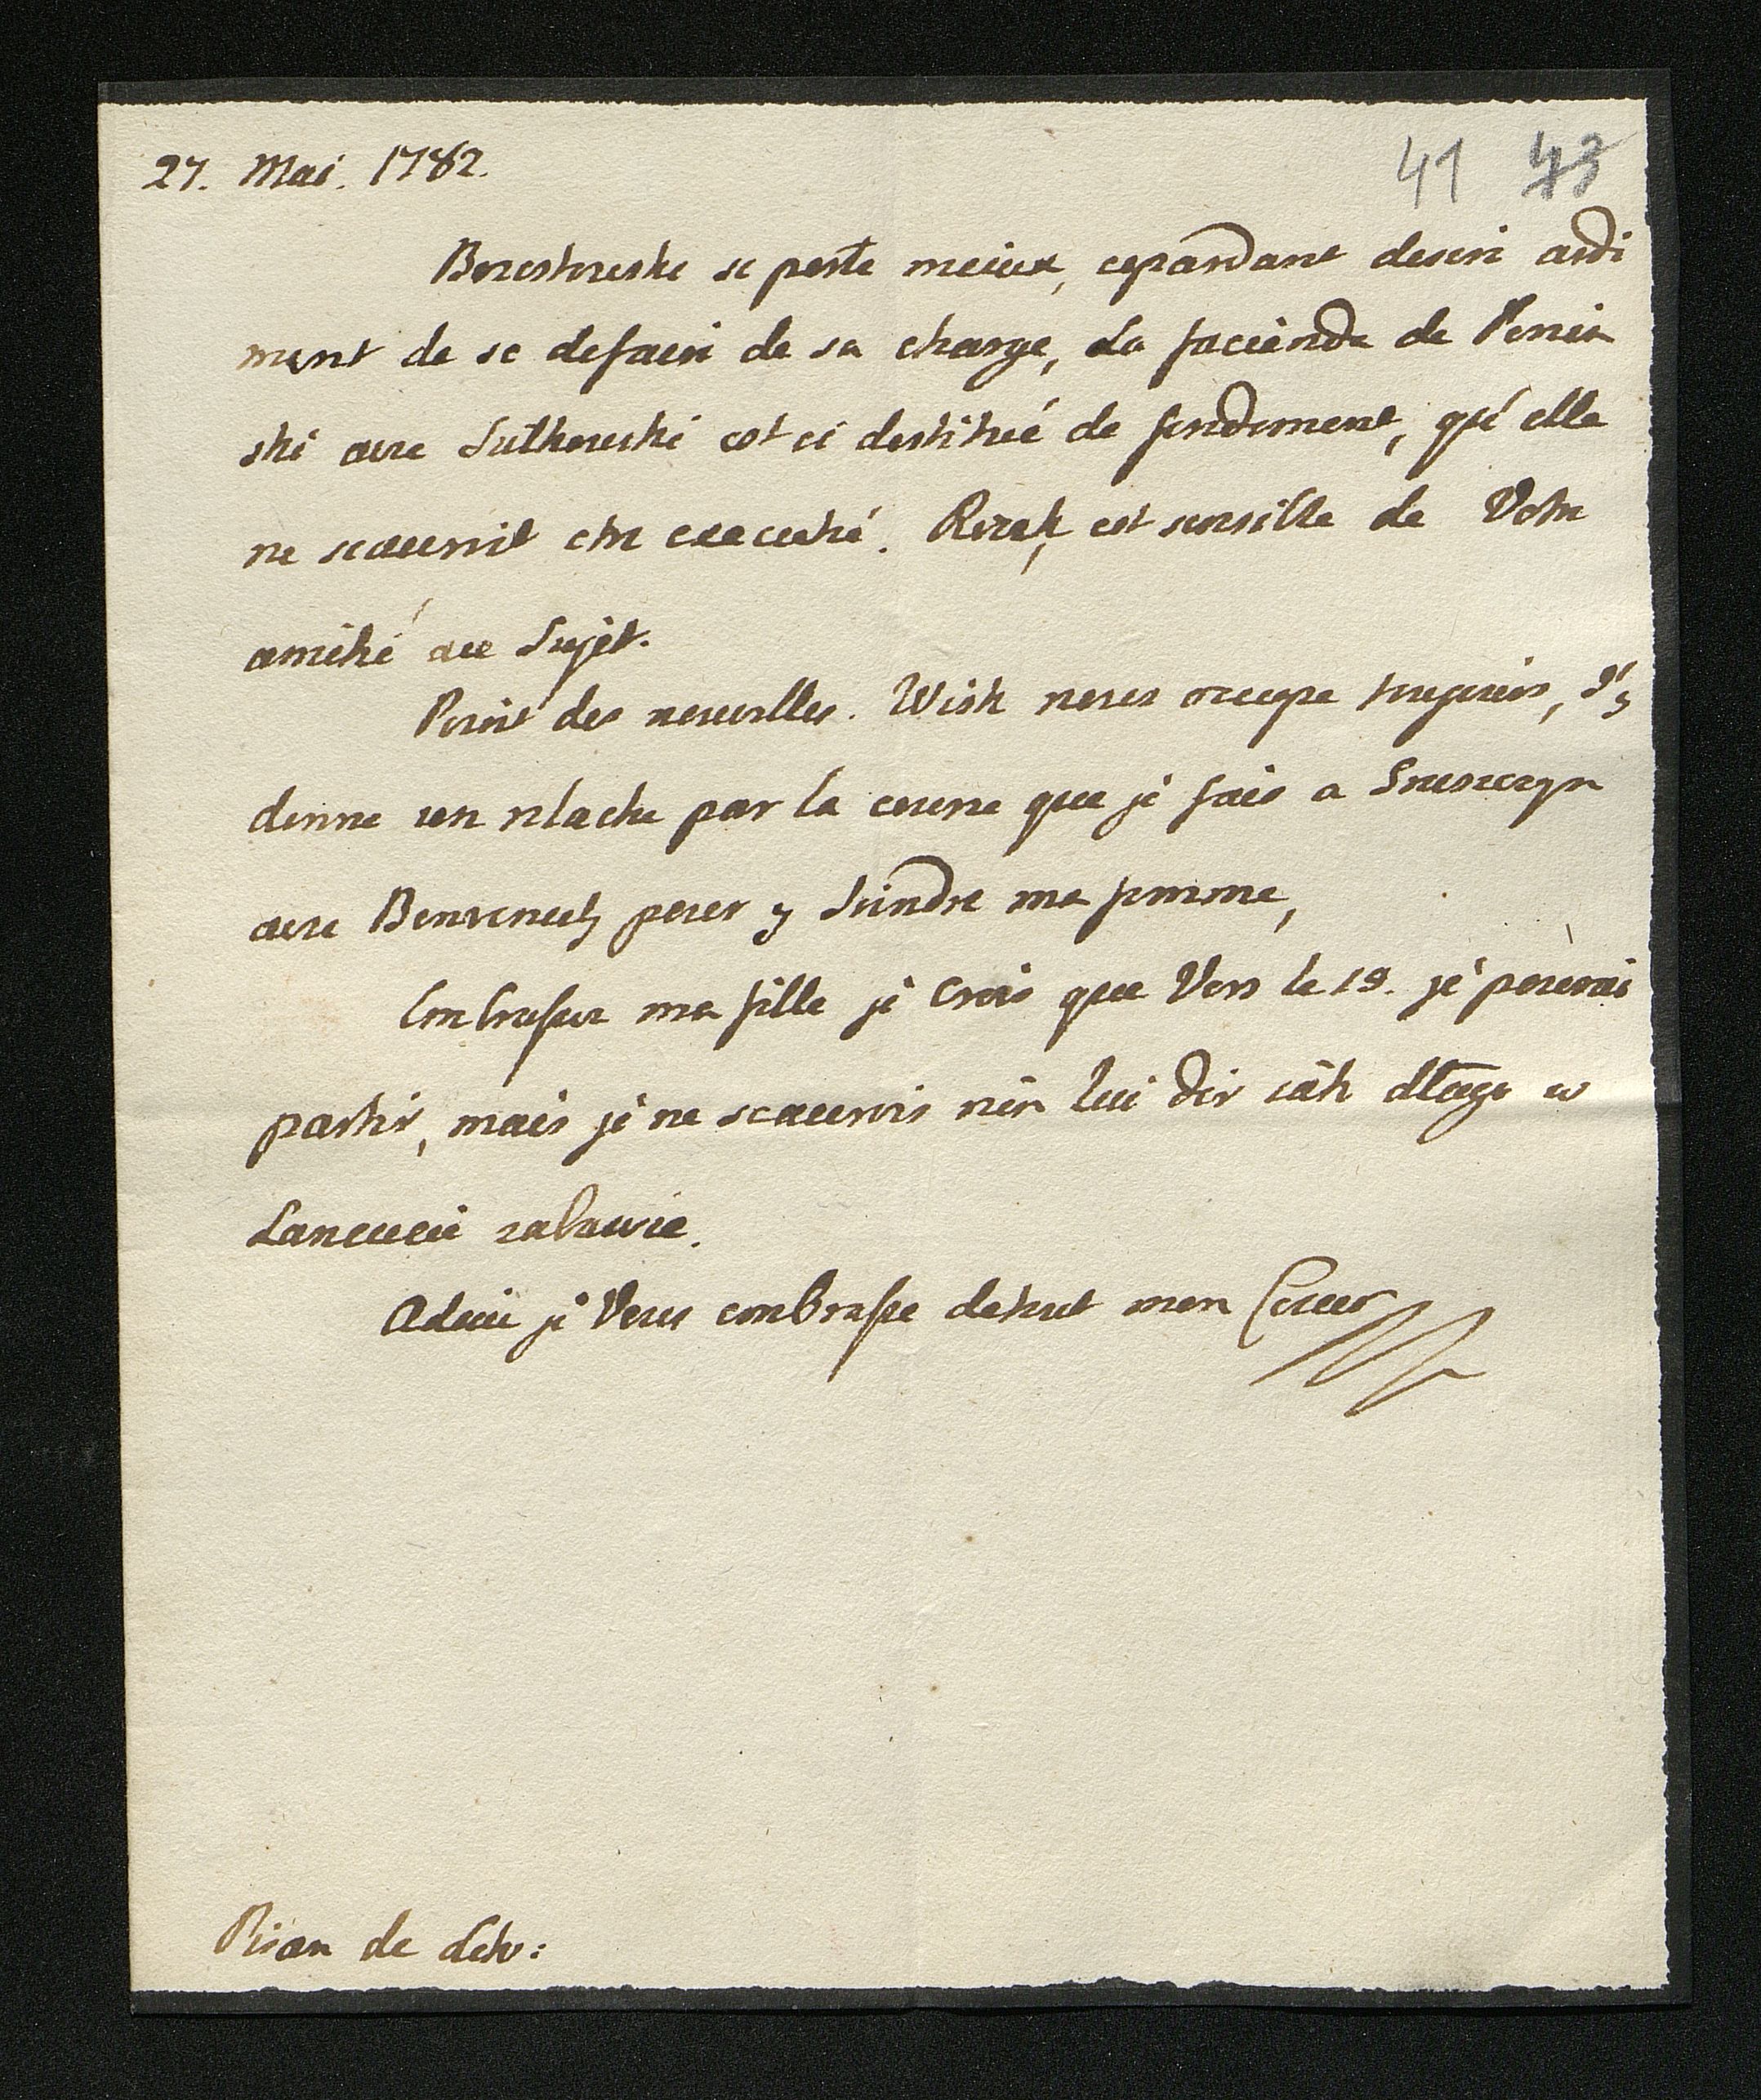 27. Mai. 1782.
41 43
se porte mieux, cepandant desire ardi
ment de se defaire de sa charge, La facienda de Ponin
ski avec Sulkowski est si destitué de fondement, qu'elle
ne scauroit etre executé. Rzeh est sensible de Votre
amitié au Sujet.
Point des nouvelles. Wisk nous occupe toujours, J'y
donne un relache par la course que je fais a
avec Benvenuty pour y Joindre ma femme,
Embrassez ma fille je Crois que Vers le 19. je pourai
partir, mais je ne scaurois rien lui dir iak długo w
Lancucie zabawie.
Adieu je Vous embrasse de tout mon Coeur
Rien de Leh: